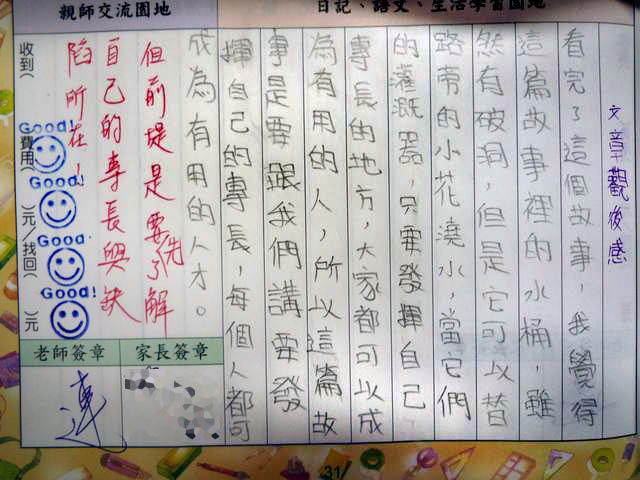 日記、語文、生活學習園地
文章觀後感
看完了這個故事,我覺得
這篇故事裡的水桶,雖
然有破洞,但是它可以替
路旁的小花澆水,當它們
的灌溉器,只要發揮自己
專長的地方,大家都可以成
為有用的人,所以這篇故
事是要跟我們講要發
揮自己的專長,每個人都可
成為有用的人才。
親師交流園地
但前提是要先了解
自己的專長與缺
陷所在!
收到( 費用( )元/找回( )元
Good!
Good!
Good!
Good!
家長簽章
老師簽章
連
31